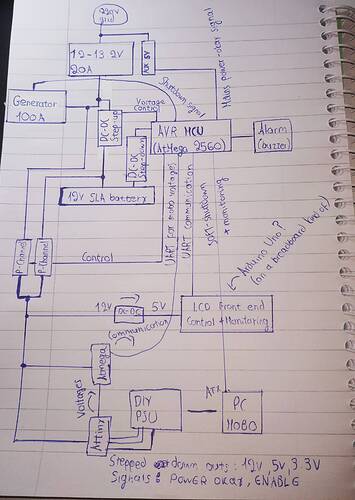 220V
grid
12-13.2V
20A
AUX 5V
Mains power-okay signal
Shutdown signal
Generator
100A
Voltage
Control
DC-DC
Step-up
DC-DC
Step-down
AVR MCU
(AtMega 2560)
Alarm
(buzzer)
12V SLA battery
UART for mobo voltages
UART communication
soft-shutdown
+ monitoring
P-Channel
P-Channel
Control
Arduino Uno?
(on a breadboard kind of)
12V
DC-DC
5V
LCD Front end
Control + Monitoring
Communication
Atmega
Voltages
Attiny
DIY
PSU
ATX
PC
MOBO
Stepped down outs: 12V, 5V, 3.3V
Signals: POWER OKAY, ENABLE